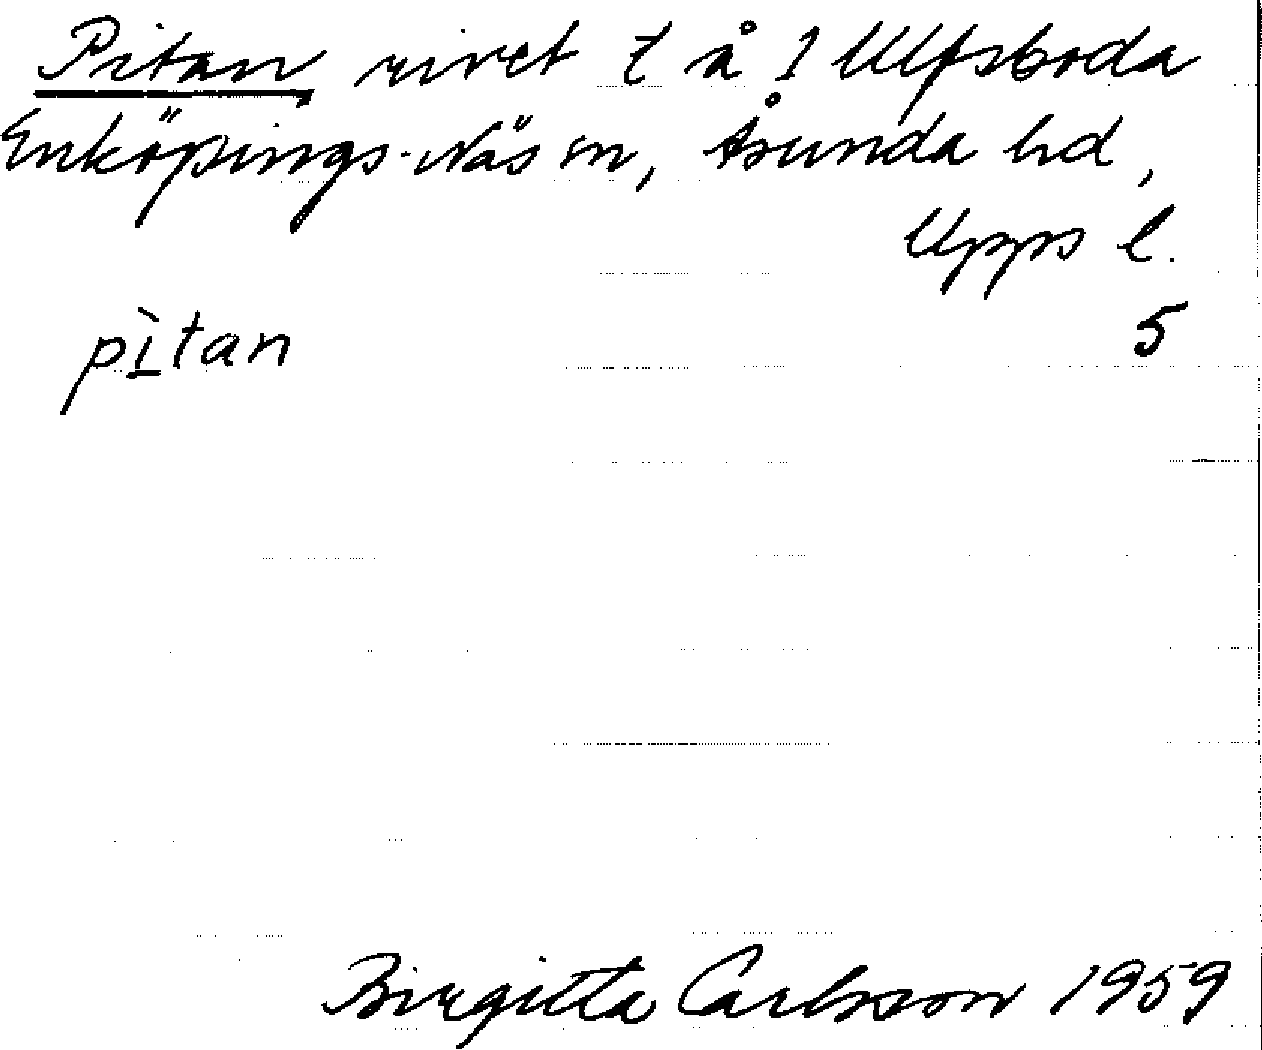 Pitan rivet t å 1 Ulfsboda
Enköpings-Näs sn, Åsunda hd,
Upps l.
pìtan 5
Birgitta Carlsson 1959